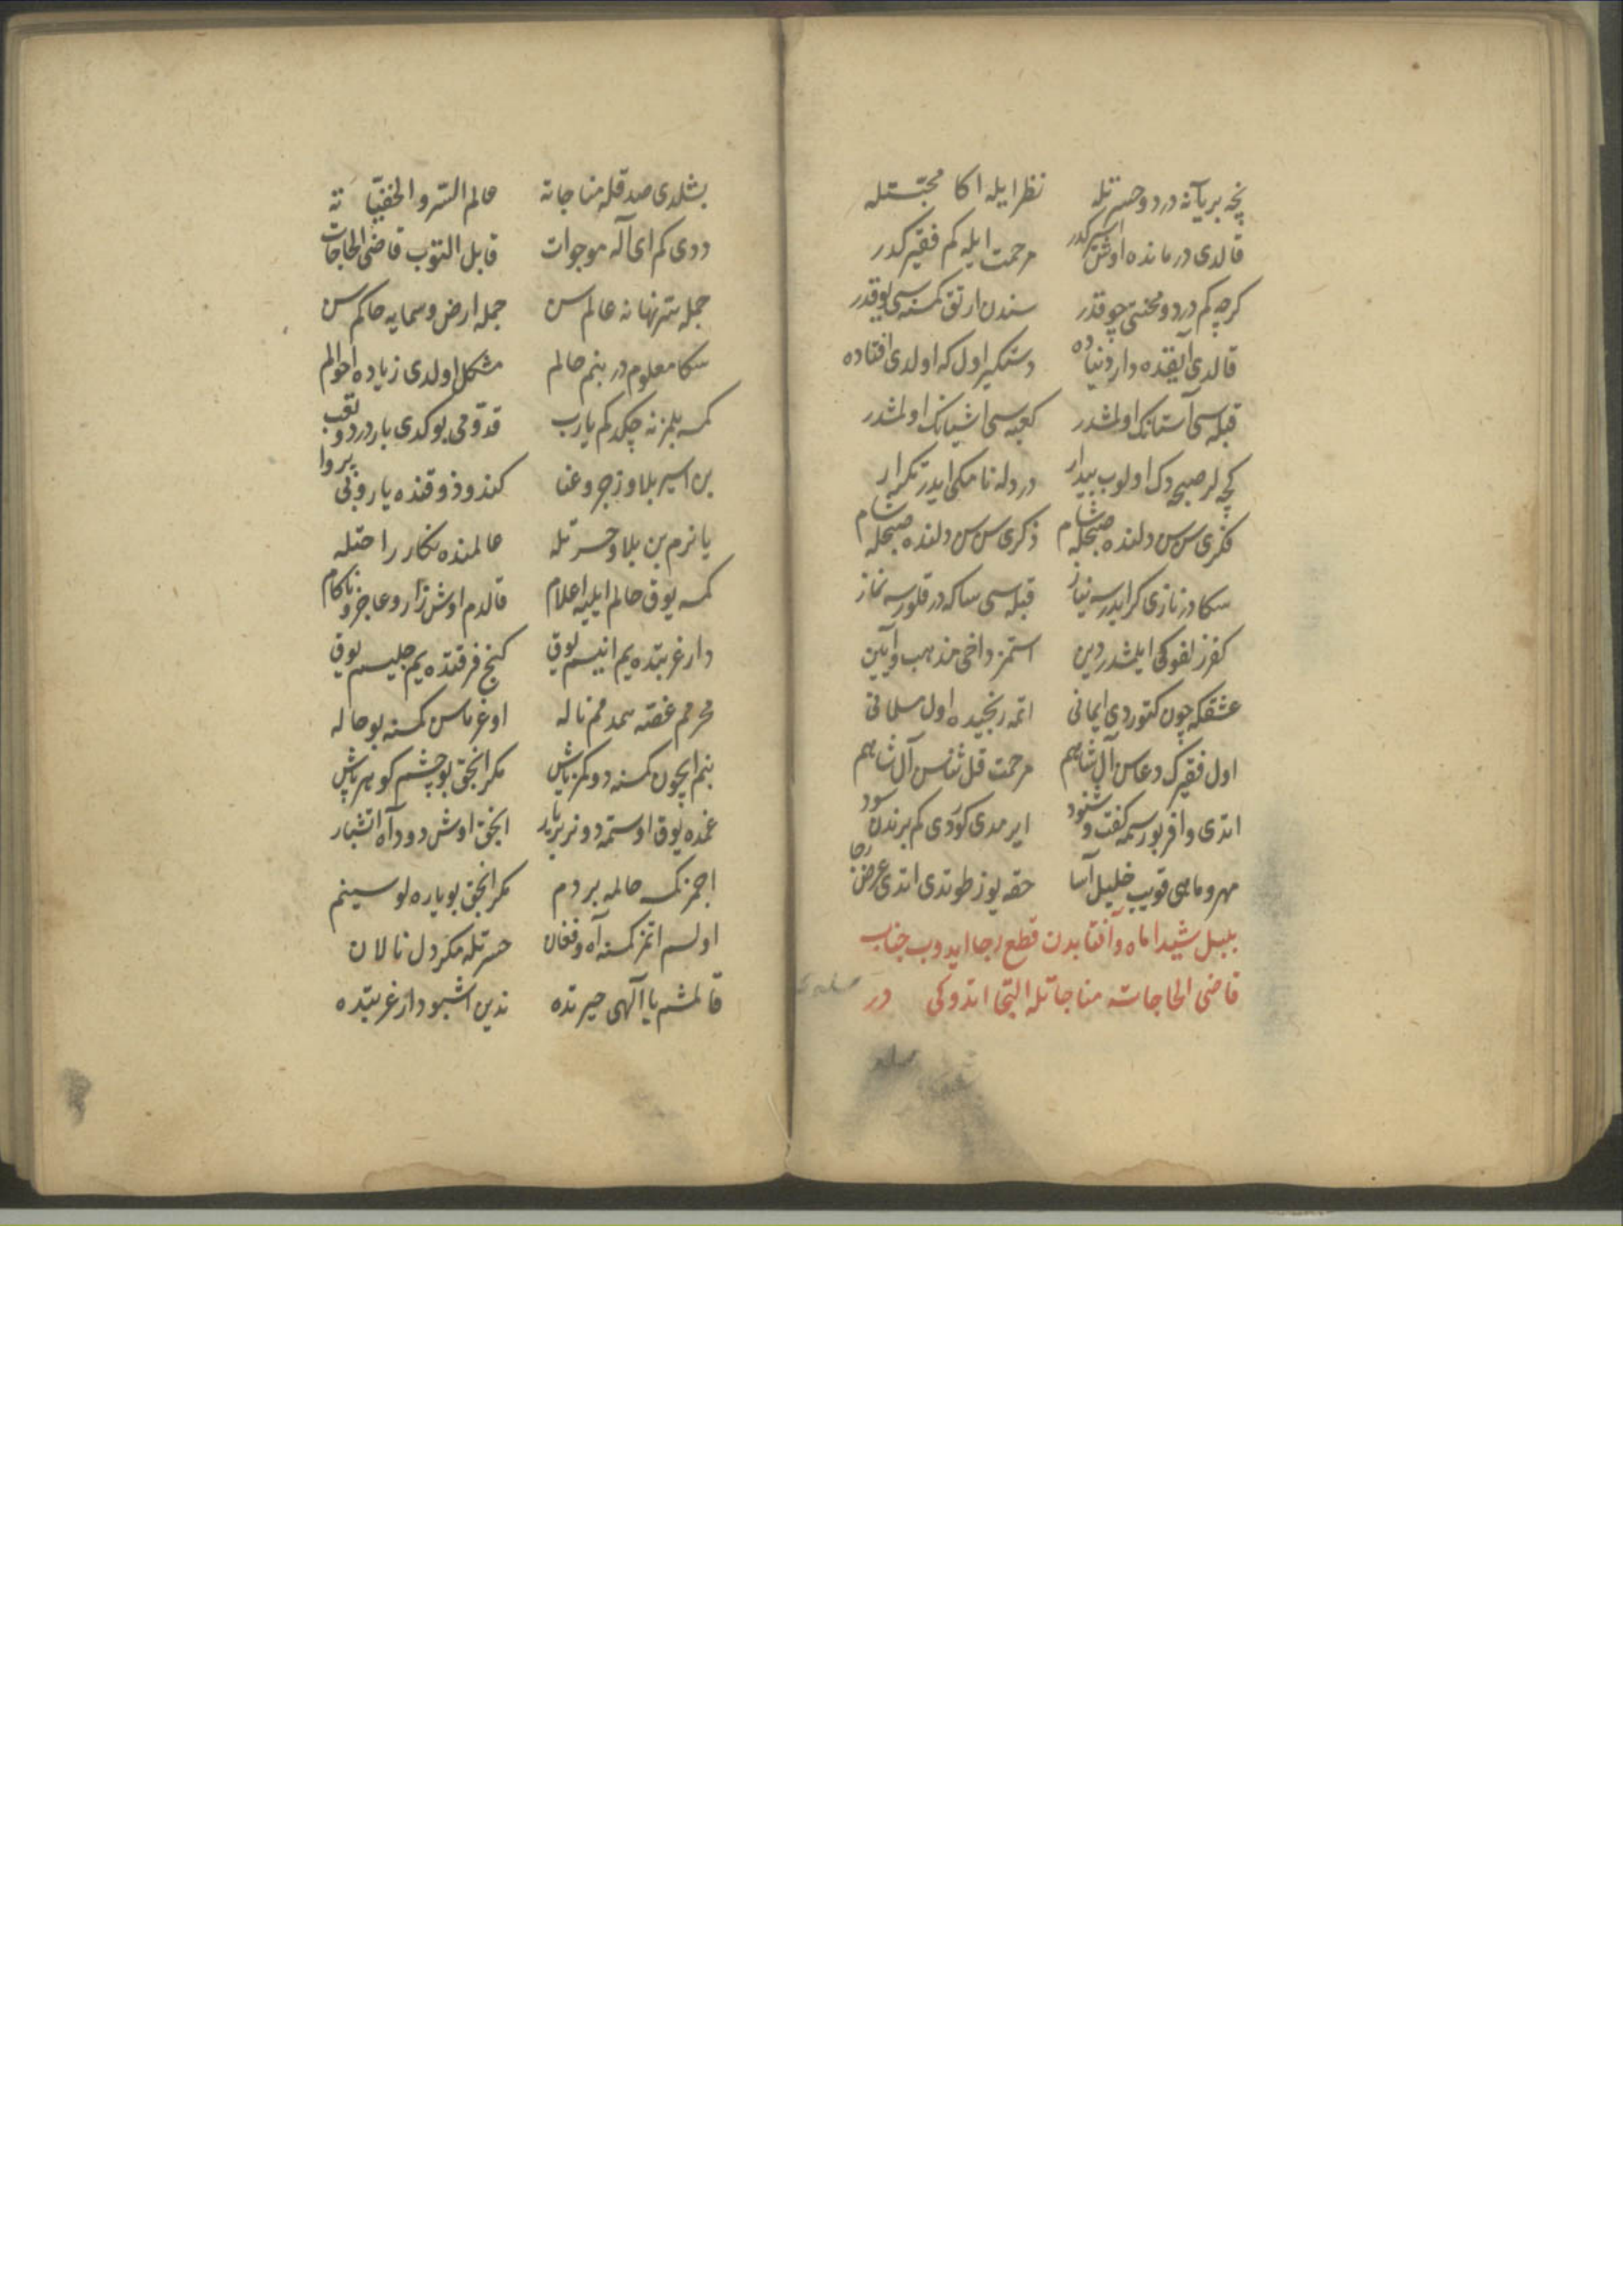 نچه بر یانه درد و حسرتله نظر ایله اکا محبتتله
قالدی درمانده اوش اسیرکدر مرحمت ایله کم فقیرکدر
کرچه کم درد و محنتی چوقدر سندن ارتق کمنه سی یوقدر
قالدی ایقده دار دنیاده دستکیر اول که اولدی افتاده
قبله سی آستانک اولمشدر کعبه سی اشیانک اولمشدر
کیجه لر صبحه دک اولوب بیدار درد له نامکی ایدر تکرار
فکری سن سن دلنده صبحله شام ذکری سن سن دلنده صبحله شام
سکا در نازی کر ایدرسه نیاز قبله سی ساکه در قلورسه نماز
کفر زلفوکی ایلمشدر دین استمز داخی مذهب و آیین
عشقکه چون کتوردی ایمانی اتمه رنجیده اول مسلمانی
اول فقیرک دعاسن آل شاهم مرحمت قل ثناسن آل شاهم
اتدی وافر بو رسمه کفت و شنود ایرمدی کوردی کم برندن سود
مهر و ماهی قویب خلیل آسا حقه یوز طوتدی اتدی عرض رجا
بلبل شیدا ماه و آفتابدن قطع رجا ایدوب جناب
قاضی الحاجاته مناجاتله التجا اتدوکی در
بشلدی صدقله مناجاته عالم السر و الخفیاته
ددی کم ای اله موجوات قابل التوب قاضی الحاجات
جمله سر نهانه عالم سن جمله ارض و سمایه حاکم سن
سکا معلومدر بنم حالم مشکل اولدی زیاده احوالم
کمسه بلمز نه چکدکم یارب قدومی بوکدی بار درد و تعب
بن اسیر بلا و زجر و عنا کندو ذوقنده یار و بی پروا
یانرم بن بلا و حسرتله عالمنده نکار راحتله
کمسه یوق حالم ایلیه اعلام قالدم اوش زار و عاجز و ناکام
دار غربتده یم انیسم یوق کنج فرقتده یم جلیسم یوق
محرمم غصه همدمم ناله اوغرماسن کمسنه بو حاله
بنم ایچون کمسنه دوکمز یاش مکر انجق بو چشم کوهر پاش
غمده یوق اوستمه دونر بر یار انجق اوش دود آه اتشبار
اجمز نک حالمه بر دم مکر انجق بو یاره لو سینم
اولسم اتمز کمسنه آه و فغان حسرتله مکر دل نالان
قالمشم یا الهی حیرتده ندین اشبو دار غربتده